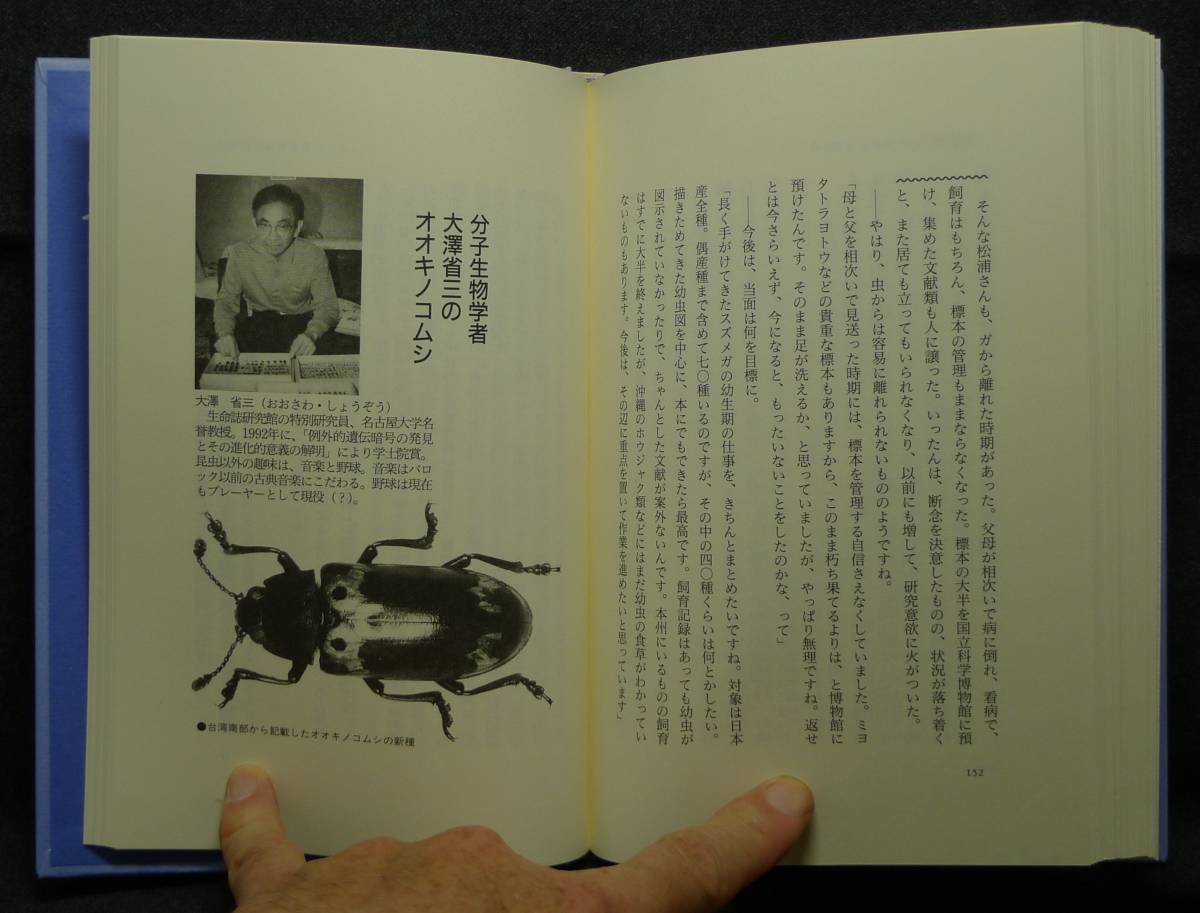 そんな松浦さんも、ガから離れた時期があった。父母が相次いで病に倒れ、看病で、
飼育はもちろん、標本の管理もままならなくなった。標本の大半を国立科学博物館に預
け、集めた文献類も人に譲った。いったんは、断念を決意したものの、状況が落ち着く
と、また居ても立ってもいられなくなり、以前にも増して、研究意欲に火がついた。
――やはり、虫からは容易に離れられないもののようですね。
「母と父を相次いで見送った時期には、標本を管理する自信さえなくしていました。ミヨ
タトラヨトウなどの貴重な標本もありますから、このまま朽ち果てるよりは、と博物館に
預けたんです。そのまま足が洗えるか、と思っていましたが、やっぱり無理ですね。返せ
とは今さらいえず、今になると、もったいないことをしたのかな、って」
――今後は、当面は何を目標に。
「長く手がけてきたスズメガの幼生期の仕事を、きちんとまとめたいですね。対象は日本
産全種。偶産種まで含めて七〇種いるのですが、その中の四〇種くらいは何とかしたい。
描きためてきた幼虫図を中心に、本にでもできたら最高です。飼育記録はあっても幼虫が
図示されていなかったりで、ちゃんとした文献が案外ないんです。本州にいるものの飼育
はすでに大半を終えましたが、沖縄のホウジャク類などにはまだ幼虫の食草がわかってい
ないものもあります。今後は、その辺に重点を置いて作業を進めたいと思っています」
152
分子生物学者
大澤省三の
オオキノコムシ
大澤 省三（おおさわ・しょうぞう）
生命誌研究館の特別研究員、名古屋大学名
誉教授。1992年に、「例外的遺伝暗号の発見
とその進化的意義の解明」により学士院賞。
昆虫以外の趣味は、音楽と野球。音楽はバロ
ック以前の古典音楽にこだわる。野球は現在
もプレーヤーとして現役（？）。
●台湾南部から記載したオオキノコムシの新種